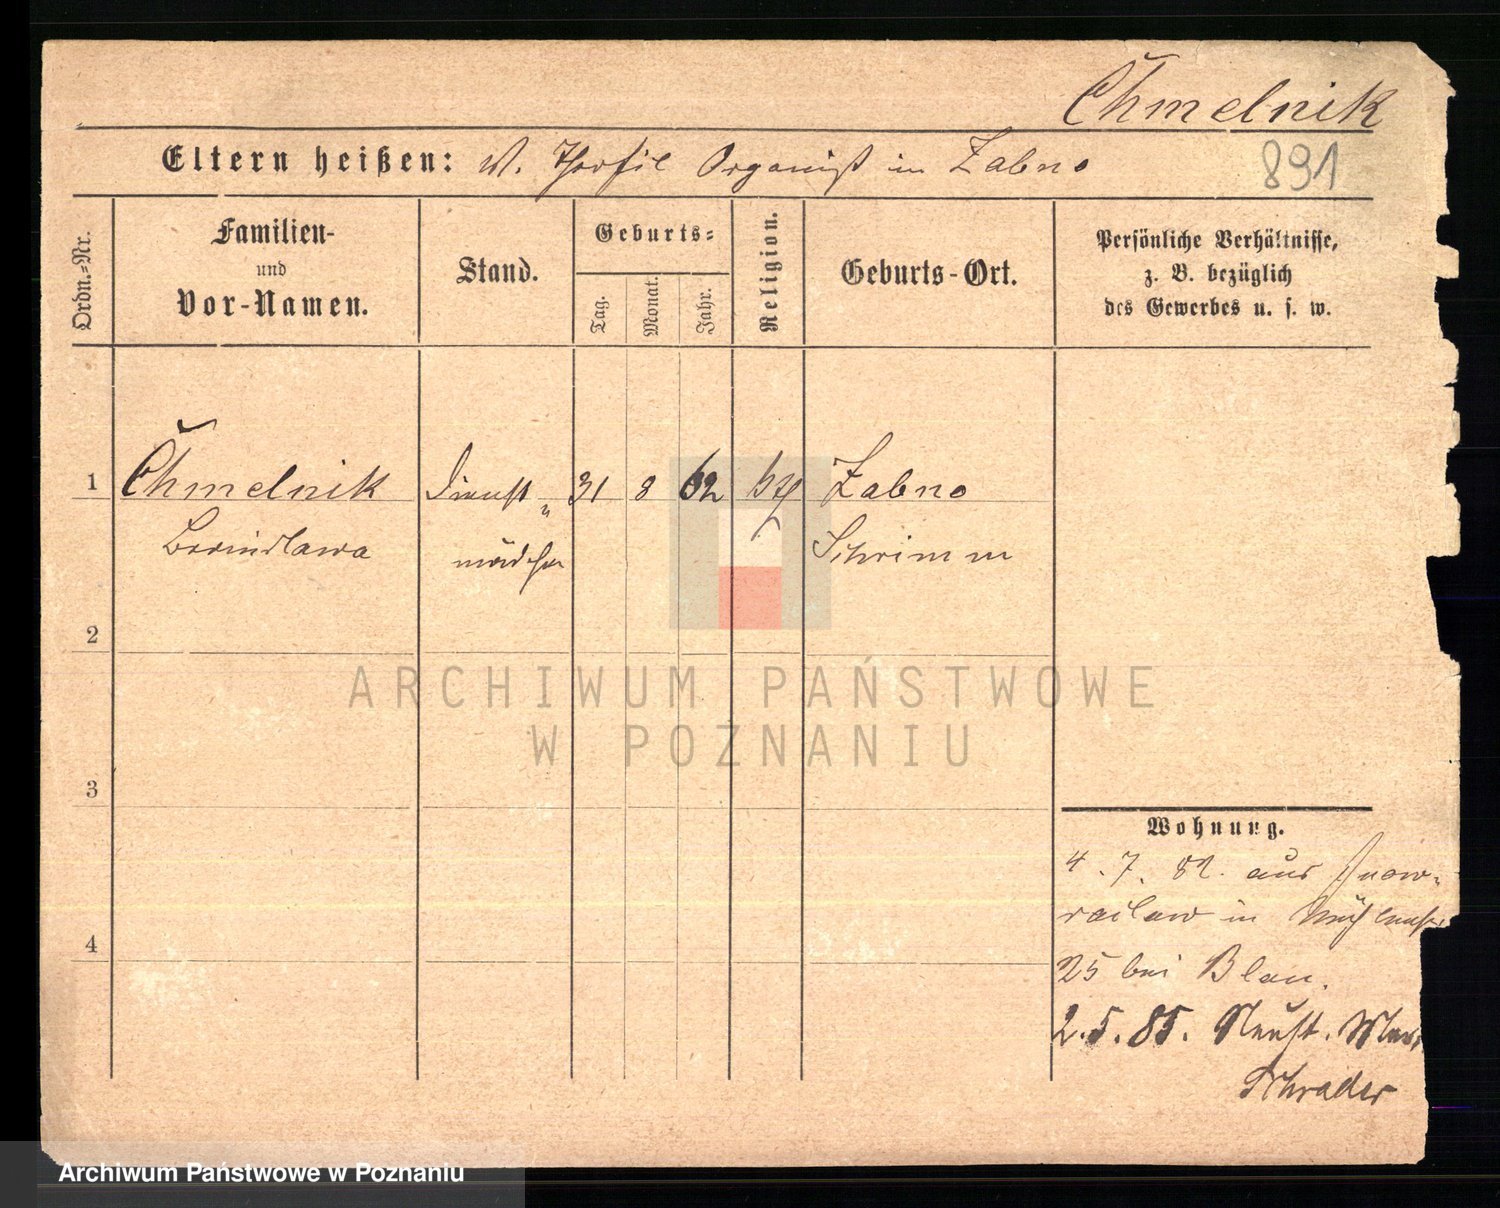 Čhmelnik
Eltern heißen: W. Organist in Zabno
891
Ordn.=Nr.
Familien-
und
Vor-Namen.
Stand.
Geburts=
Tag.
Monat.
Jahr.
Religion.
Geburts-Ort.
Persönliche Verhältnisse,
z. B. bezüglich
des Gewerbes u. s. w.
1
Čhmelnik
Dienst
31
8
62
Zabno
mädchen
Schrimm
2
ARCHIWUM PAŃSTWOWE
W POZNANIU
3
Wohnung.
4. 7. 82. aus Inow-
raclaw in
4
25 bei Blau.
2.5.85. Neust.
Schrader
Archiwum Państwowe w Poznaniu